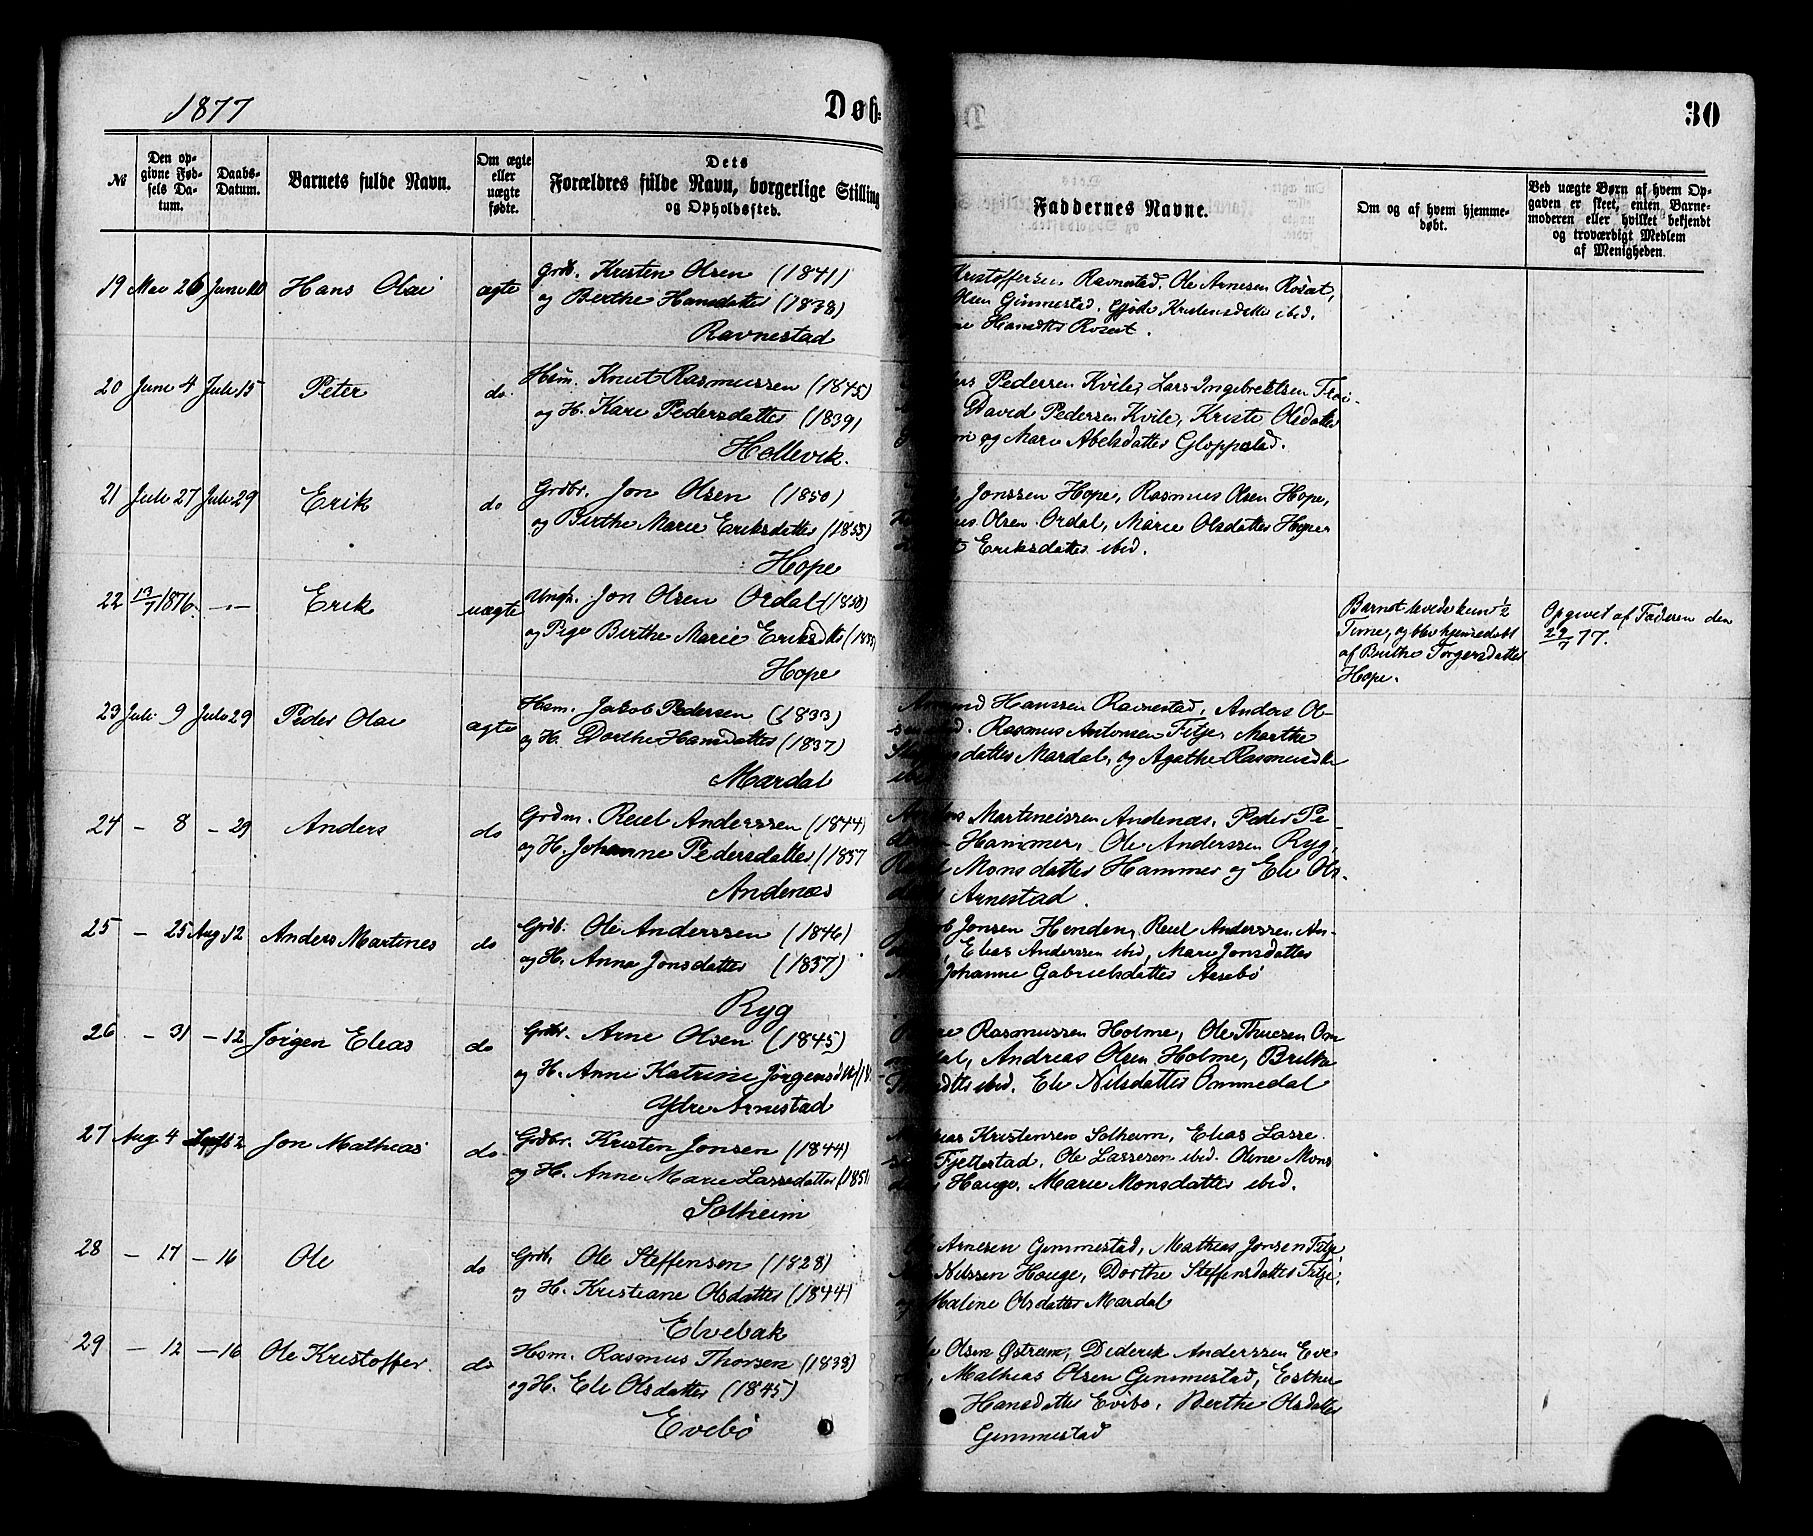 1877
Døb=
30
№
Den op-
givne Fød-
sels Da-
tum.
Daabs-
Datum.
Barnets fulde Navn.
Om ægte
eller
uægte
fødte.
Dets
Forældres fulde Navn, borgerlige Stilling
og Opholdssted.
Faddernes Navne.
Om og af hvem hjemme-
døbt.
Ved uægte Børn af hvem Op-
gaven er skeet, enten Barne-
moderen eller hvilket bekjendt
og troværdigt Medlem
af Menigheden.
19 Mai 26 Juni 10 Hans Olai ægte Grdb. Kristen Olsen (1841)
og Berthe Hansdatter (1838)
Ravnestad
Kristoffersen Ravnestad, Ole Arnesen
Olsen Gimmestad. Kristensdatter ibid.
Hansdtr
20 Juni 4 Juli 15 Peter do. Hsm. Knut Rasmussen (1845)
og H. Kari Pedersdatter (1839)
Hellevik.
Pedersen Kvile, Lars Ingebrektsen
David Pedersen Kvile, Kristi Olsdatter
og Mari Abelsdatter Gloppestad.
21 Juli 27 Juli 29 Erik do Grdbr. Jon Olsen (1850)
og Birthe Marie Eriksdatter (1855)
Hope
Jonssen Hope, Rasmus Olsen Hope,
Olsen Ordal, Marie Olsdatter Hope
Eriksdatter ibid.
22 13/7 1876. -"- Erik uægte Ungk. Jon Olsen Ordal (1850)
og Pige Birthe Marie Eriksdtr
Hope
Barnet levede kun 1/2
Time, og blev hjemmedøbt
af Birthe Torgersdatter
Hope.
Opgivet af Faderen den
29/7 77.
23 Juli 9 Juli 29 Peder Olai ægte Hsm. Jakob Pedersen (1833)
og H. Dorthe Hansdatter (1837)
Mardal
Hanssen Ravnestad, Anders Ol-
Rasmus Antonsen Fitje, Marthe
datter Mardal, og Agathe Rasmusdtr
24 - 8 - 29 Anders do Grdm. Reiel Anderssen (1844)
og H. Johanne Pedersdatter (1837
Andenæs
Martineissen Andenæs, Peder Pe-
Hammer, Ole Anderssen Ryg,
Monsdatter Hammer og Eli Ols-
Arnestad.
25 - 25 Aug 12 Anders Martines do Grdb. Ole Anderssen (1846)
og H. Anna Jonsdatter (1837)
Ryg
Jonsen Henden, Reiel Anderssen An-
Elias Anderssen ibid, Marie Jonsdatter
Johanne Gabrielsdatter Aasebø
26 - 31 - 12 Jørgen Elias do Grdbr. Arne Olsen (1845)
og H. Anne Katrine Jørgensdtr
Ydre Arnestad
Rasmussen Holme, Ole Thuesen Om
Andreas Olsen Holme,
ibid. Eli Nilsdatter Ommedal
27 Aug. 4 Jon Mathias do. Grdbr. Kristen Jonsen (1844)
og H. Anne Marie Lassedatter (1851)
Solheim
Kristensen Solheim, Elias Lasse
Fjellestad, Ole Lassesen ibid. Oline Mons
Hauge, Marie Monsdatter ibid.
28 - 17 - 16 Ole do Grdb. Ole Steffensen (1828)
og H. Kristiane Olsdatter (1844)
Elvebak
Arnesen Gimmestad, Mathias Jonsen Fitje
Nilssen Hauge, Dorthe Steffensdatter Fitje,
Malene Olsdatter Mardal
29 - 12 - 16 Ole Kristoffer. do Hsm. Rasmus Thorsen (1838)
og H. Eli Olsdatter (1845)
Evebø
Olsen Østrem, Diderik Anderssen Eve
Mathias Olsen Gimmestad, Esther
Hansdatter Evebø, Berthe Olsdatter
Gimmestad